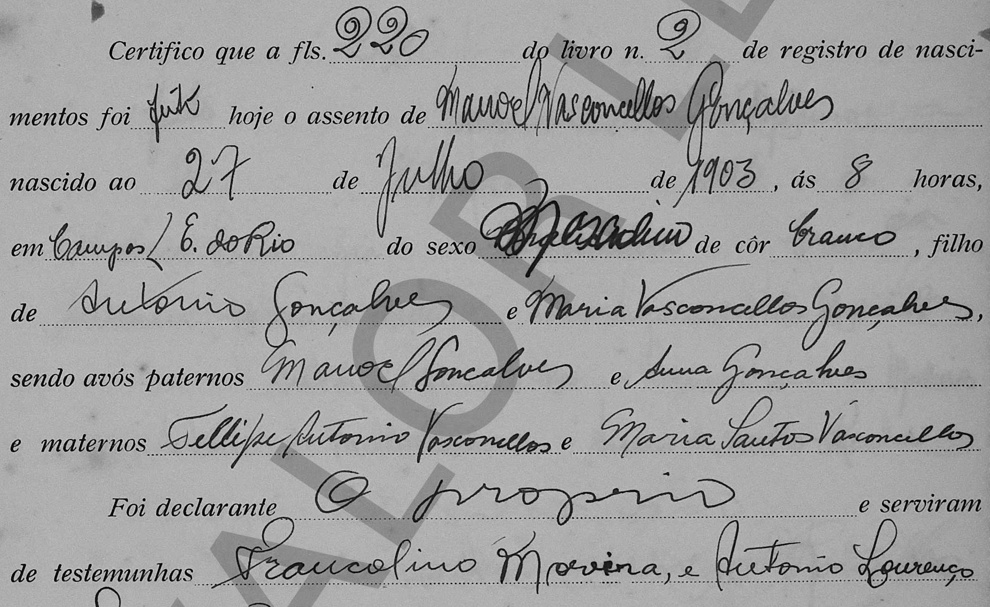 Certifico que a fls. 220 do livro n. 2 de registro de nasci-
mentos foi feito hoje o assento de Manoel Vasconcellos Gonçalves
nascido ao 27 de Julho de 1903, ás 8 horas,
em Campos/ E. do Rio do sexo Masculino de côr branco, filho
de Antonio Gonçalves e Maria Vasconcellos Gonçalves,
sendo avós paternos Manoel Goncalves e Anna Gonçalves
e maternos Fellipe Antonio Vasconcellos e Maria Santos Vasconcellos
Foi declarante O proprio e serviram
de testemunhas Francolino Moreira, e Antonio Lourenço